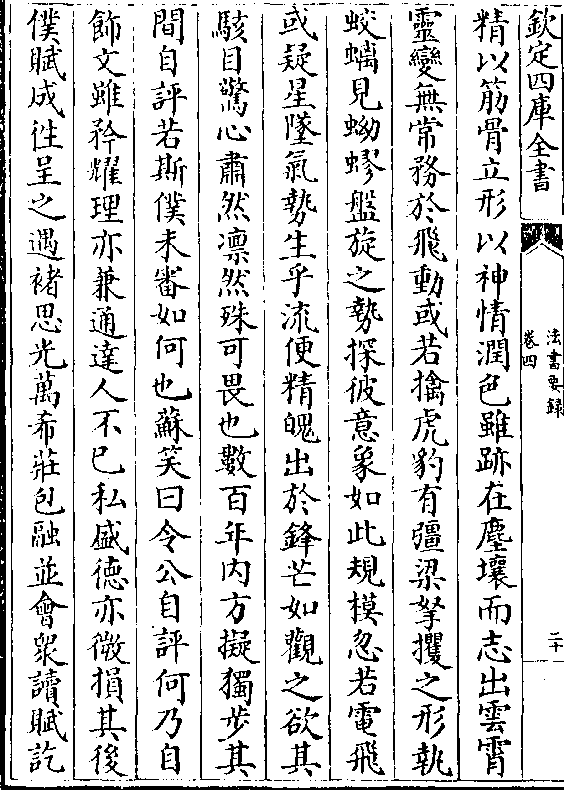 欽定四庫全書
法書要録
卷四
二十
精以筋骨立形以神情潤色雖跡在塵壤而志出雲霄
靈變無常務於飛動或若擒虎豹有彊梁拏攫之形執
蛟螭見蚴蟉盤旋之勢探彼意象如此規模忽若電飛
或疑星墜氣勢生乎流便精魄出於鋒芒如觀之欲其
駭目驚心肅然凛然殊可畏也數百年内方擬獨步其
間自評若斯僕未審如何也蘇笑曰令公自評何乃自
飾文雖矜耀理亦兼通達人不已私盛德亦微損其後
僕賦成徃呈之遇褚思光萬希莊包融並會衆讀賦訖